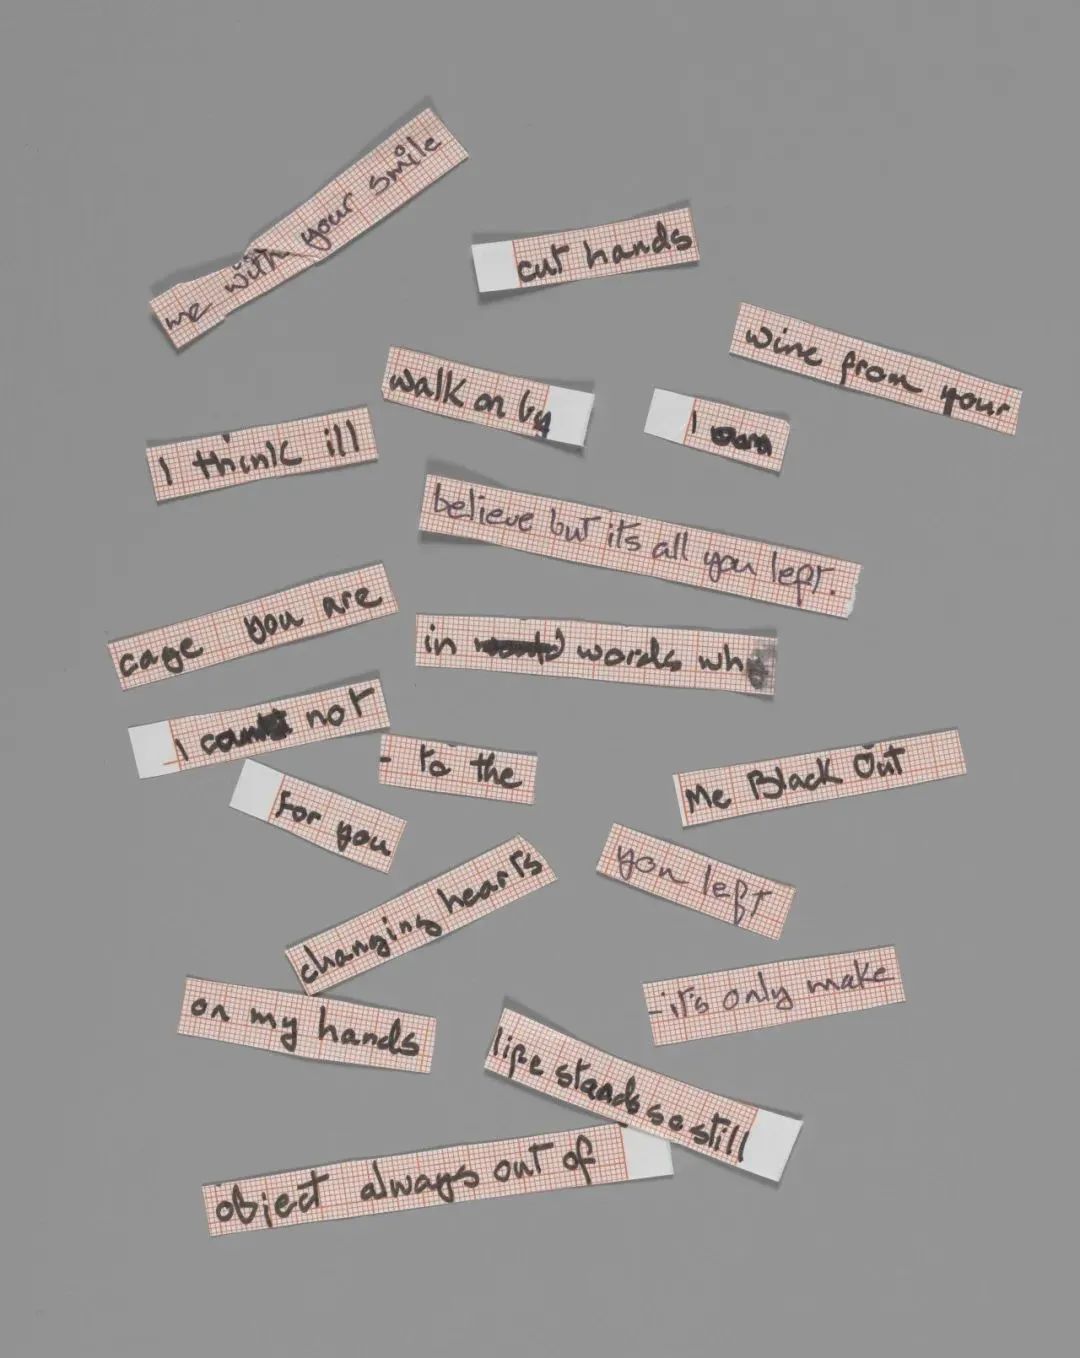 me with your smile
cut hands
wine from your
walk on by
I
I think ill
believe but its all you left.
cage you are
in words wh
I not
- to the
Me Black Out
for you
changing hearts
you left
- it's only make
on my hands
life stands so still
object always out of